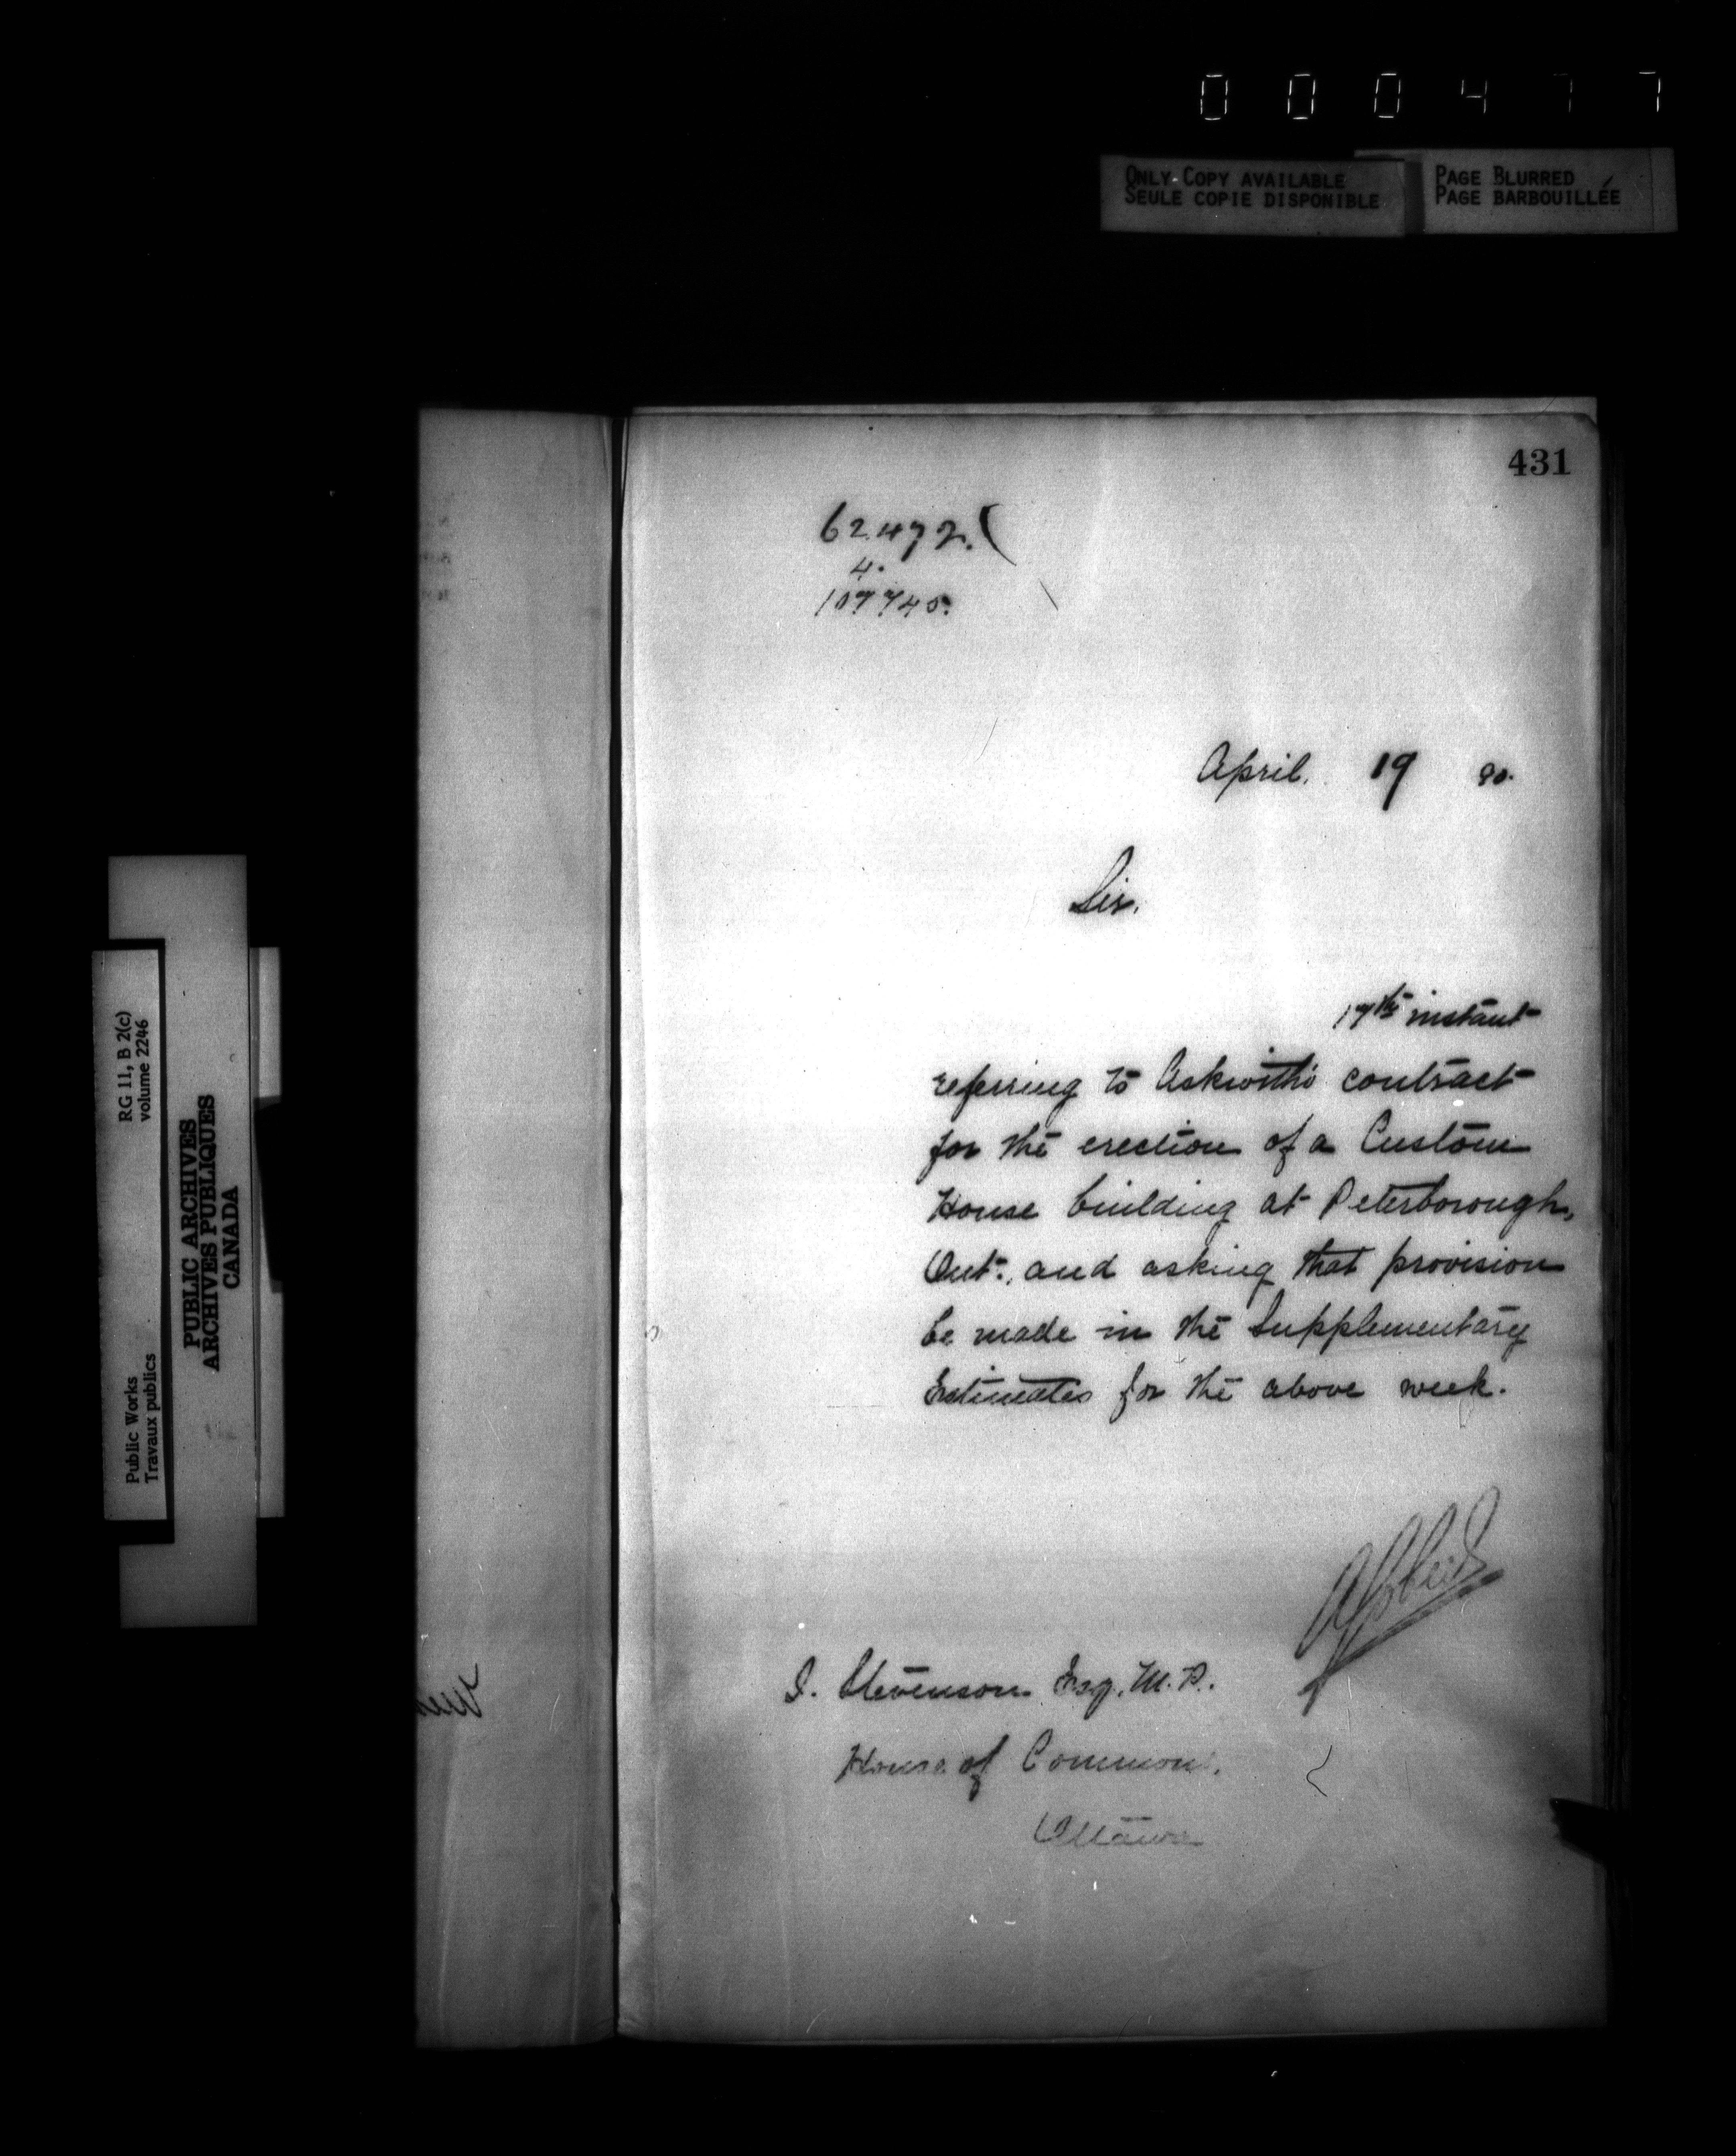 000477
ONLY COPY AVAILABLE
SEULE COPIE DISPONIBLE
PAGE BLURRED
PAGE BARBOUILLÉE
431
62472.
4.
107745.
April. 19 90.
Sir.
17th instant
referring to Askwith's contract
for the erection of a Custom
House building at Peterborough,
Ont., and asking that provision
be made in the Supplementary
Estimates for the above week.
J. Stevenson Esq. M.P.
House of Commons.
Ottawa
RG 11, B 2(c)
volume 2246
Public Works
Travaux publics
PUBLIC ARCHIVES
ARCHIVES PUBLIQUES
CANADA